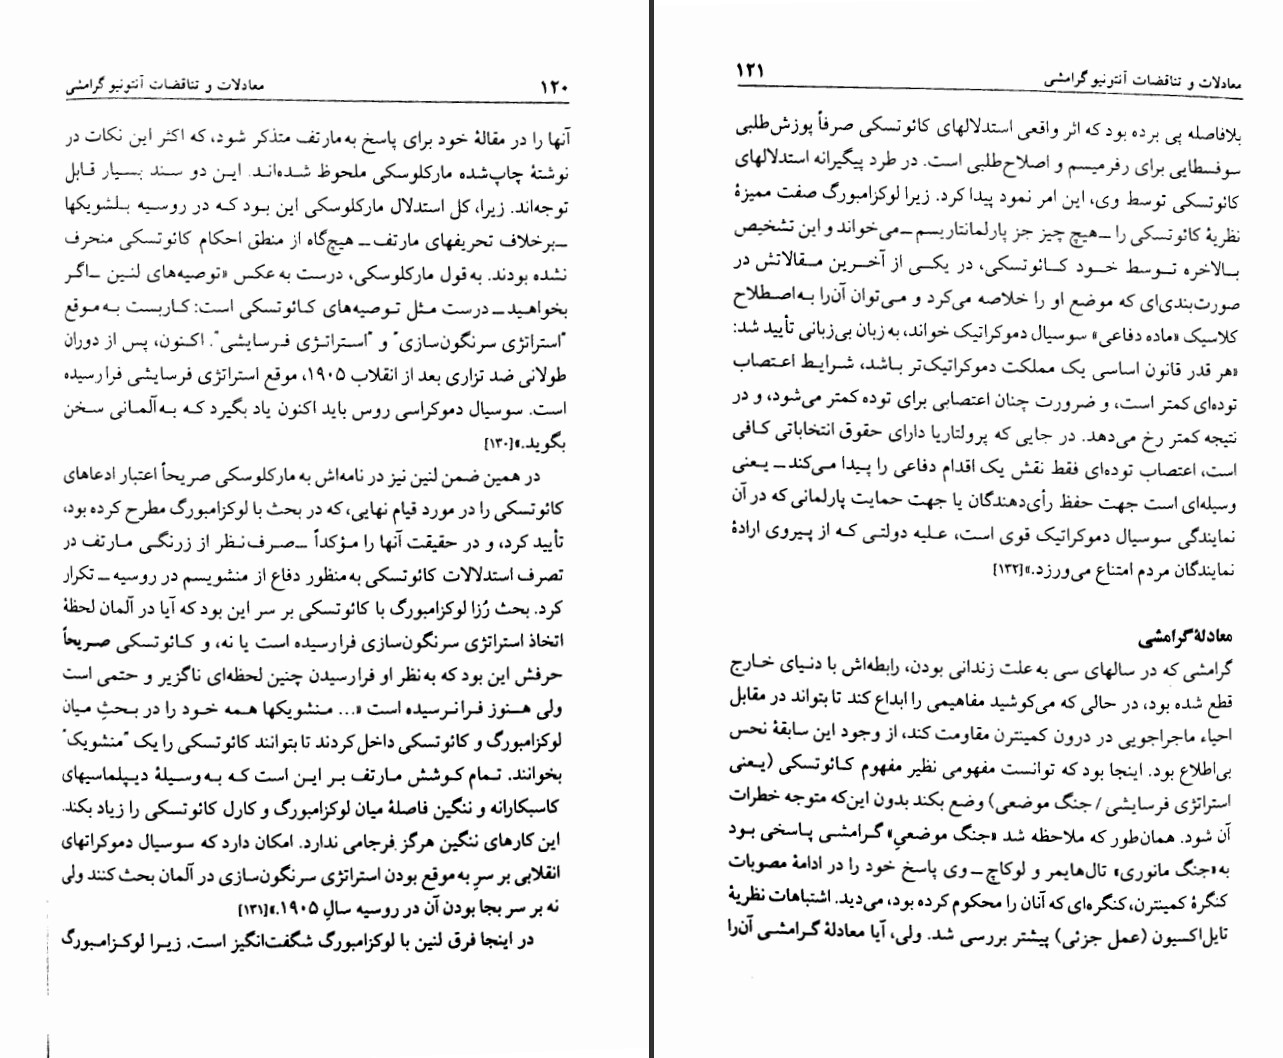 ۱۲۰ معادلات و تناقضات آنتونیو گرامشی
آنها را در مقالهٔ خود برای پاسخ به مارتف متذکر شود، که اکثر این نکات در
نوشتهٔ چاپ‌شده مارکلوسکی ملحوظ شده‌اند. این دو سند بسیار قابل
توجه‌اند. زیرا، کل استدلال مارکلوسکی این بود که در روسیه بلشویکها
ـ‌برخلاف تحریفهای مارتف‌ـ هیچ‌گاه از منطق احکام کائوتسکی منحرف
نشده بودند. به قول مارکلوسکی، درست به عکس «توصیه‌های لنین ـ‌اگر
بخواهید‌ـ درست مثل توصیه‌های کائوتسکی است: کاربست به‌موقع
"استراتژی سرنگون‌سازی" و "استراتژی فرسایشی". اکنون، پس از دوران
طولانی ضد تزاری بعد از انقلاب ۱۹۰۵، موقع استراتژی فرسایشی فرا رسیده
است. سوسیال دموکراسی روس باید اکنون یاد بگیرد که به آلمانی سخن
بگوید.»[۱۳۰]
در همین ضمن لنین نیز در نامه‌اش به مارکلوسکی صریحاً اعتبار ادعاهای
کائوتسکی را در مورد قیام نهایی، که در بحث با لوکزامبورگ مطرح کرده بود،
تأیید کرد، و در حقیقت آنها را مؤکداً ـ‌صرف‌نظر از زرنگی مارتف در
تصرف استدلالات کائوتسکی به‌منظور دفاع از منشویسم در روسیه‌ـ تکرار
کرد. بحث رُزا لوکزامبورگ با کائوتسکی بر سر این بود که آیا در آلمان لحظهٔ
اتخاذ استراتژی سرنگون‌سازی فرا رسیده است یا نه، و کائوتسکی صریحاً
حرفش این بود که به نظر او فرا رسیدن چنین لحظه‌ای ناگزیر و حتمی است
ولی هنوز فرا نرسیده است «... منشویکها همه خود را در بحثِ میان
لوکزامبورگ و کائوتسکی داخل کردند تا بتوانند کائوتسکی را یک "منشویک"
بخوانند. تمام کوشش مارتف بر این است که به وسیلهٔ دیپلماسیهای
کاسبکارانه و ننگین فاصلهٔ میان لوکزامبورگ و کارل کائوتسکی را زیاد بکند.
این کارهای ننگین هرگز فرجامی ندارد. امکان دارد که سوسیال دموکراتهای
انقلابی بر سرِ به‌موقع بودن استراتژی سرنگون‌سازی در آلمان بحث کنند ولی
نه بر سر بجا بودن آن در روسیه سالِ ۱۹۰۵.»[۱۳۱]
در اینجا فرق لنین با لوکزامبورگ شگفت‌انگیز است. زیرا لوکزامبورگ
معادلات و تناقضات آنتونیو گرامشی ۱۲۱
بلافاصله پی برده بود که اثر واقعی استدلالهای کائوتسکی صرفاً پوزش‌طلبی
سوفسطایی برای رفرمیسم و اصلاح‌طلبی است. در طرد پیگیرانه استدلالهای
کائوتسکی توسط وی، این امر نمود پیدا کرد. زیرا لوکزامبورگ صفت ممیزهٔ
نظریهٔ کائوتسکی را ـ‌هیچ چیز جز پارلمانتاریسم‌ـ می‌خواند و این تشخیص
بالاخره توسط خود کائوتسکی، در یکی از آخرین مقالاتش در
صورت‌بندی‌ای که موضع او را خلاصه می‌کرد و می‌توان آن‌را به‌اصطلاح
کلاسیک «ماده دفاعی» سوسیال دموکراتیک خواند، به زبان بی‌زبانی تأیید شد:
«هر قدر قانون اساسی یک مملکت دموکراتیک‌تر باشد، شرایط اعتصاب
توده‌ای کمتر است، و ضرورت چنان اعتصابی برای توده کمتر می‌شود، و در
نتیجه کمتر رخ می‌دهد. در جایی که پرولتاریا دارای حقوق انتخاباتی کافی
است، اعتصاب توده‌ای فقط نقش یک اقدام دفاعی را پیدا می‌کند‌ـ یعنی
وسیله‌ای است جهت حفظ رأی‌دهندگان یا جهت حمایت پارلمانی که در آن
نمایندگی سوسیال دموکراتیک قوی است، علیه دولتی که از پیروی ارادهٔ
نمایندگان مردم امتناع می‌ورزد.»[۱۳۲]
معادلهٔ گرامشی
گرامشی که در سالهای سی به علت زندانی بودن، رابطه‌اش با دنیای خارج
قطع شده بود، در حالی که می‌کوشید مفاهیمی را ابداع کند تا بتواند در مقابل
احیاء ماجراجویی در درون کمینترن مقاومت کند، از وجود این سابقهٔ نحس
بی‌اطلاع بود. اینجا بود که توانست مفهومی نظیر مفهوم کائوتسکی (یعنی
استراتژی فرسایشی / جنگ موضعی) وضع بکند بدون این‌که متوجه خطرات
آن شود. همان‌طور که ملاحظه شد «جنگ موضعیِ» گرامشی پاسخی بود
به «جنگ مانوری» تال‌هایمر و لوکاچ ـ وی پاسخ خود را در ادامهٔ مصوبات
کنگرهٔ کمینترن، کنگره‌ای که آنان را محکوم کرده بود، می‌دید. اشتباهات نظریهٔ
تایل‌اکسیون (عمل جزئی) پیشتر بررسی شد. ولی، آیا معادلهٔ گرامشی آن‌را